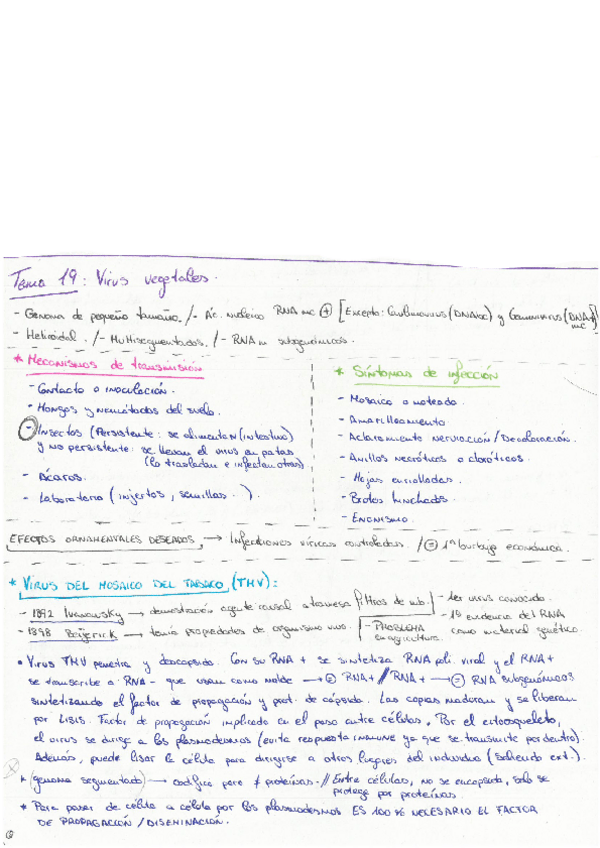 Tema 19: Virus vegetales.
- Genoma de pequeño tamaño. /- Ác. nucleico RNA mc + [Excepto: Caulimovirus (DNAbc) y Geminivirus (DNA mc +)]
- Helicoidal. /- Multisegmentados. /- RNAm subgenómicos.
* Mecanismos de transmisión
- Contacto o inoculación.
- Hongos y nemátodos del suelo.
- Insectos (Persistente: se alimentan (intestino)
y no persistente: se llevan el virus en patas
(lo trasladan e infectan otras)
- Ácaros.
- Laboratorio (injertos, semillas..).
* Síntomas de infección
- Mosaico o moteado.
- Amarilleamiento
- Aclaramiento nerviación / Decoloración.
- Anillos necróticos o cloróticos.
- Hojas enrolladas.
- Brotes hinchados.
- Enanismo.
EFECTOS ORNAMENTALES DESEADOS → Infecciones víricas controladas. / = 1ª burbuja económica.
* VIRUS DEL MOSAICO DEL TABACO (TMV):
- 1892 Ivanowsky → demostración agente causal atravesa filtros de mb. - 1er virus conocido.
- 1898 Beijerick → tenía propiedades de organismo vivo. - PROBLEMA en agricultura. - 1ª evidencia del RNA como material genético.
• Virus TMV penetra y descapsida. Con su RNA + se sintetiza RNA poli. viral y el RNA +
se transcribe a RNA - que usan como molde → RNA + // RNA + → RNA subgenómicos
sintetizando el factor de propagación y prot. de cápsida. Las copias maduran y se liberan
por LISIS. Factor de propagación implicado en el paso entre células. Por el citoesqueleto,
el virus se dirige a los plasmodesmos (evita respuesta inmune ya que se transmite por dentro).
Además, puede lisar la célula para dirigirse a otros lugares del individuo (saliendo ext.).
* (genoma segmentado) → codifica para ≠ proteínas. // Entre células, no se encapsida, solo se
protege por proteínas.
* Para pasar de célula a célula por los plasmodesmos ES 100% NECESARIO EL FACTOR
DE PROPAGACIÓN / DISEMINACIÓN.